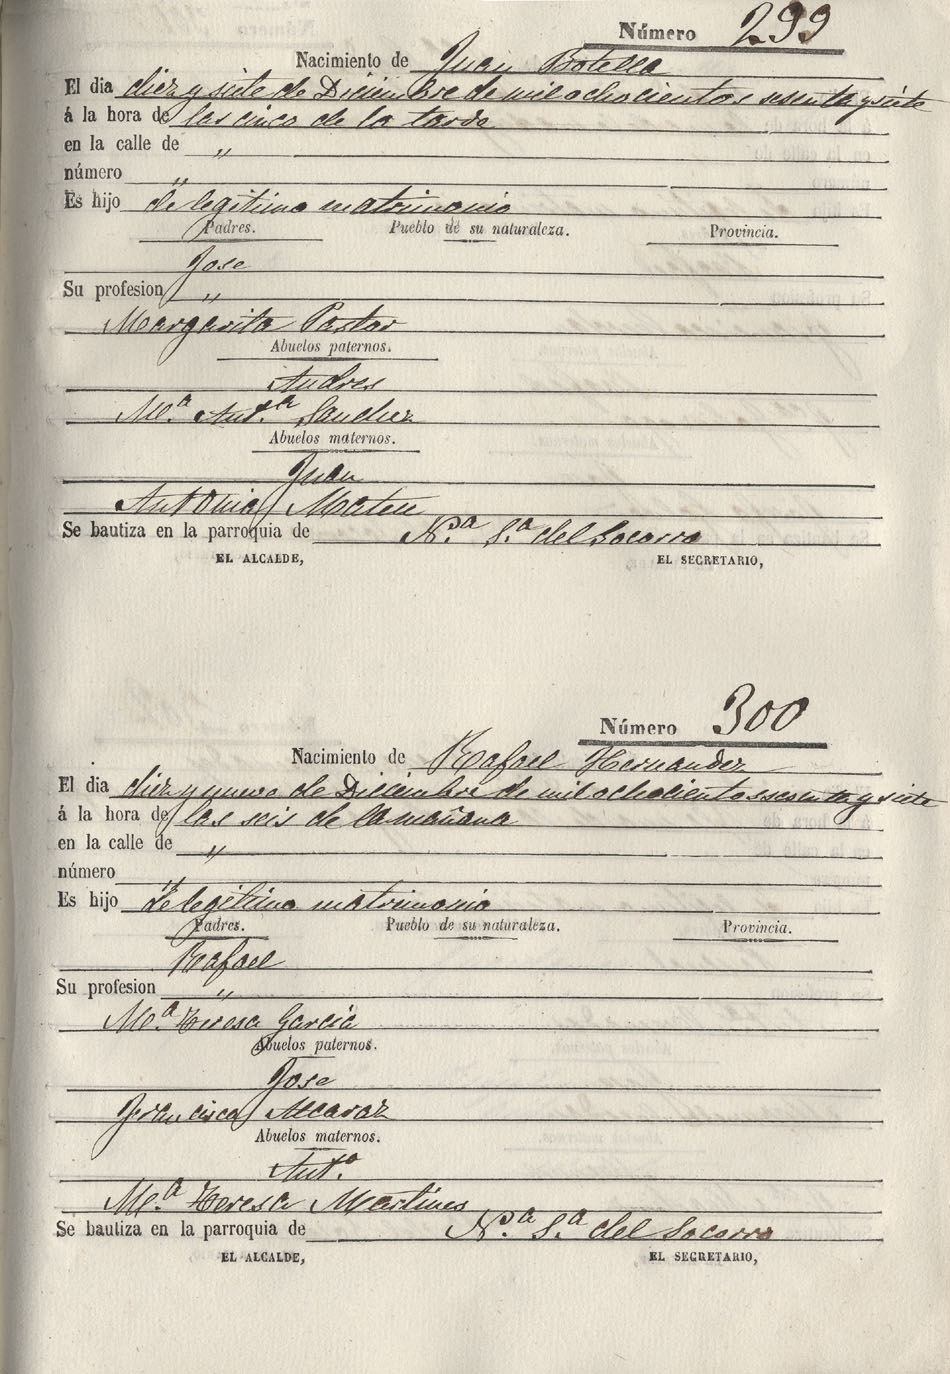 Número 299
Nacimiento de Juan Botella
El dia diez y siete de Diciembre de mil ochocientos sesenta y siete
á la hora de las cinco de la tarde
en la calle de "
número "
Es hijo de legitimo matrimonio
Padres. Pueblo de su naturaleza. Provincia.
Jose
Su profesion "
Margarita Pastor
Abuelos paternos.
Andres
M.ª Ant.ª Sanchez
Abuelos maternos.
Juan
Antonia Mateu
Se bautiza en la parroquia de N.ª S.ª del Socorro
EL ALCALDE, EL SECRETARIO,
Número 300
Nacimiento de Rafael Hernandez
El dia diez y nueve de Diciembre de mil ochocientos sesenta y siete
á la hora de las seis de la mañana
en la calle de "
número "
Es hijo de legitimo matrimonio
Padres. Pueblo de su naturaleza. Provincia.
Rafael
Su profesion "
M.ª Teresa Garcia
Abuelos paternos.
Jose
Francisca Alcaraz
Abuelos maternos.
Ant.º
M.ª Teresa Martines
Se bautiza en la parroquia de N.ª S.ª del Socorro
EL ALCALDE, EL SECRETARIO,